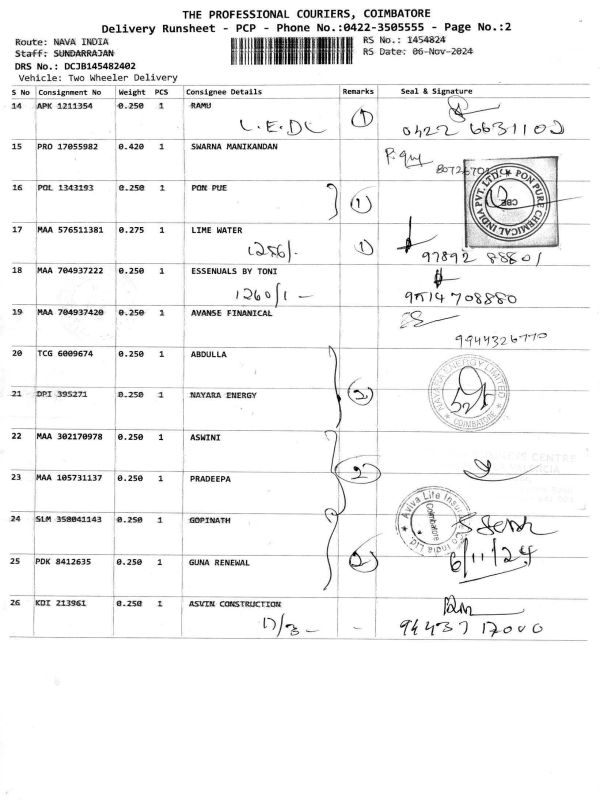 THE PROFESSIONAL COURIERS, COIMBATORE
Delivery Runsheet - PCP - Phone No.:0422-3505555 - Page No.:2
Route: NAVA INDIA
RS No.: 1454824
Staff: SUNDARRAJAN
RS Date: 06-Nov-2024
DRS No.: DCJB145482402
Vehicle: Two Wheeler Delivery
S No Consignment No Weight PCS Consignee Details Remarks Seal & Signature
14 APK 1211354 0.250 1 RAMU
L.E.DC 1 0422 6631102
15 PRO 17055982 0.420 1 SWARNA MANIKANDAN
16 POL 1343193 0.250 1 PON PUE 1
PON PURE CHEMICAL INDIA PVT. LTD. CBE
17 MAA 576511381 0.275 1 LIME WATER
1256/- 1 97892 88801
18 MAA 704937222 0.250 1 ESSENUALS BY TONI
1260/1 - 9514708880
19 MAA 704937420 0.250 1 AVANSE FINANICAL
9944326770
20 TCG 6009674 0.250 1 ABDULLA
21 DPI 395271 0.250 1 NAYARA ENERGY 2
NAYARA ENERGY LIMITED COIMBATORE
22 MAA 302170978 0.250 1 ASWINI
2
23 MAA 105731137 0.250 1 PRADEEPA
24 SLM 358041143 0.250 1 GOPINATH
Aviva Life Insurance Co India Ltd. Coimbatore
25 PDK 8412635 0.250 1 GUNA RENEWAL 2
6/11/24
26 KDI 213961 0.250 1 ASVIN CONSTRUCTION
17/3- - 94437 17000